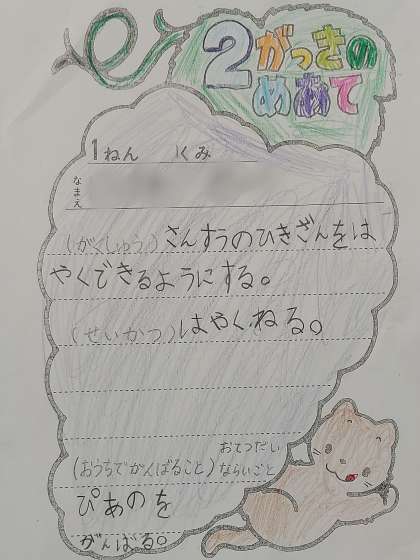 2がっきの
めあて
1ねん 1くみ
なまえ
(がくしゅう)さんすうのひきざんをは
やくできるようにする。
(せいかつ)はやくねる。
(おうちでがんばること)おてつだい
ならいごと
ぴあのを
がんばる。